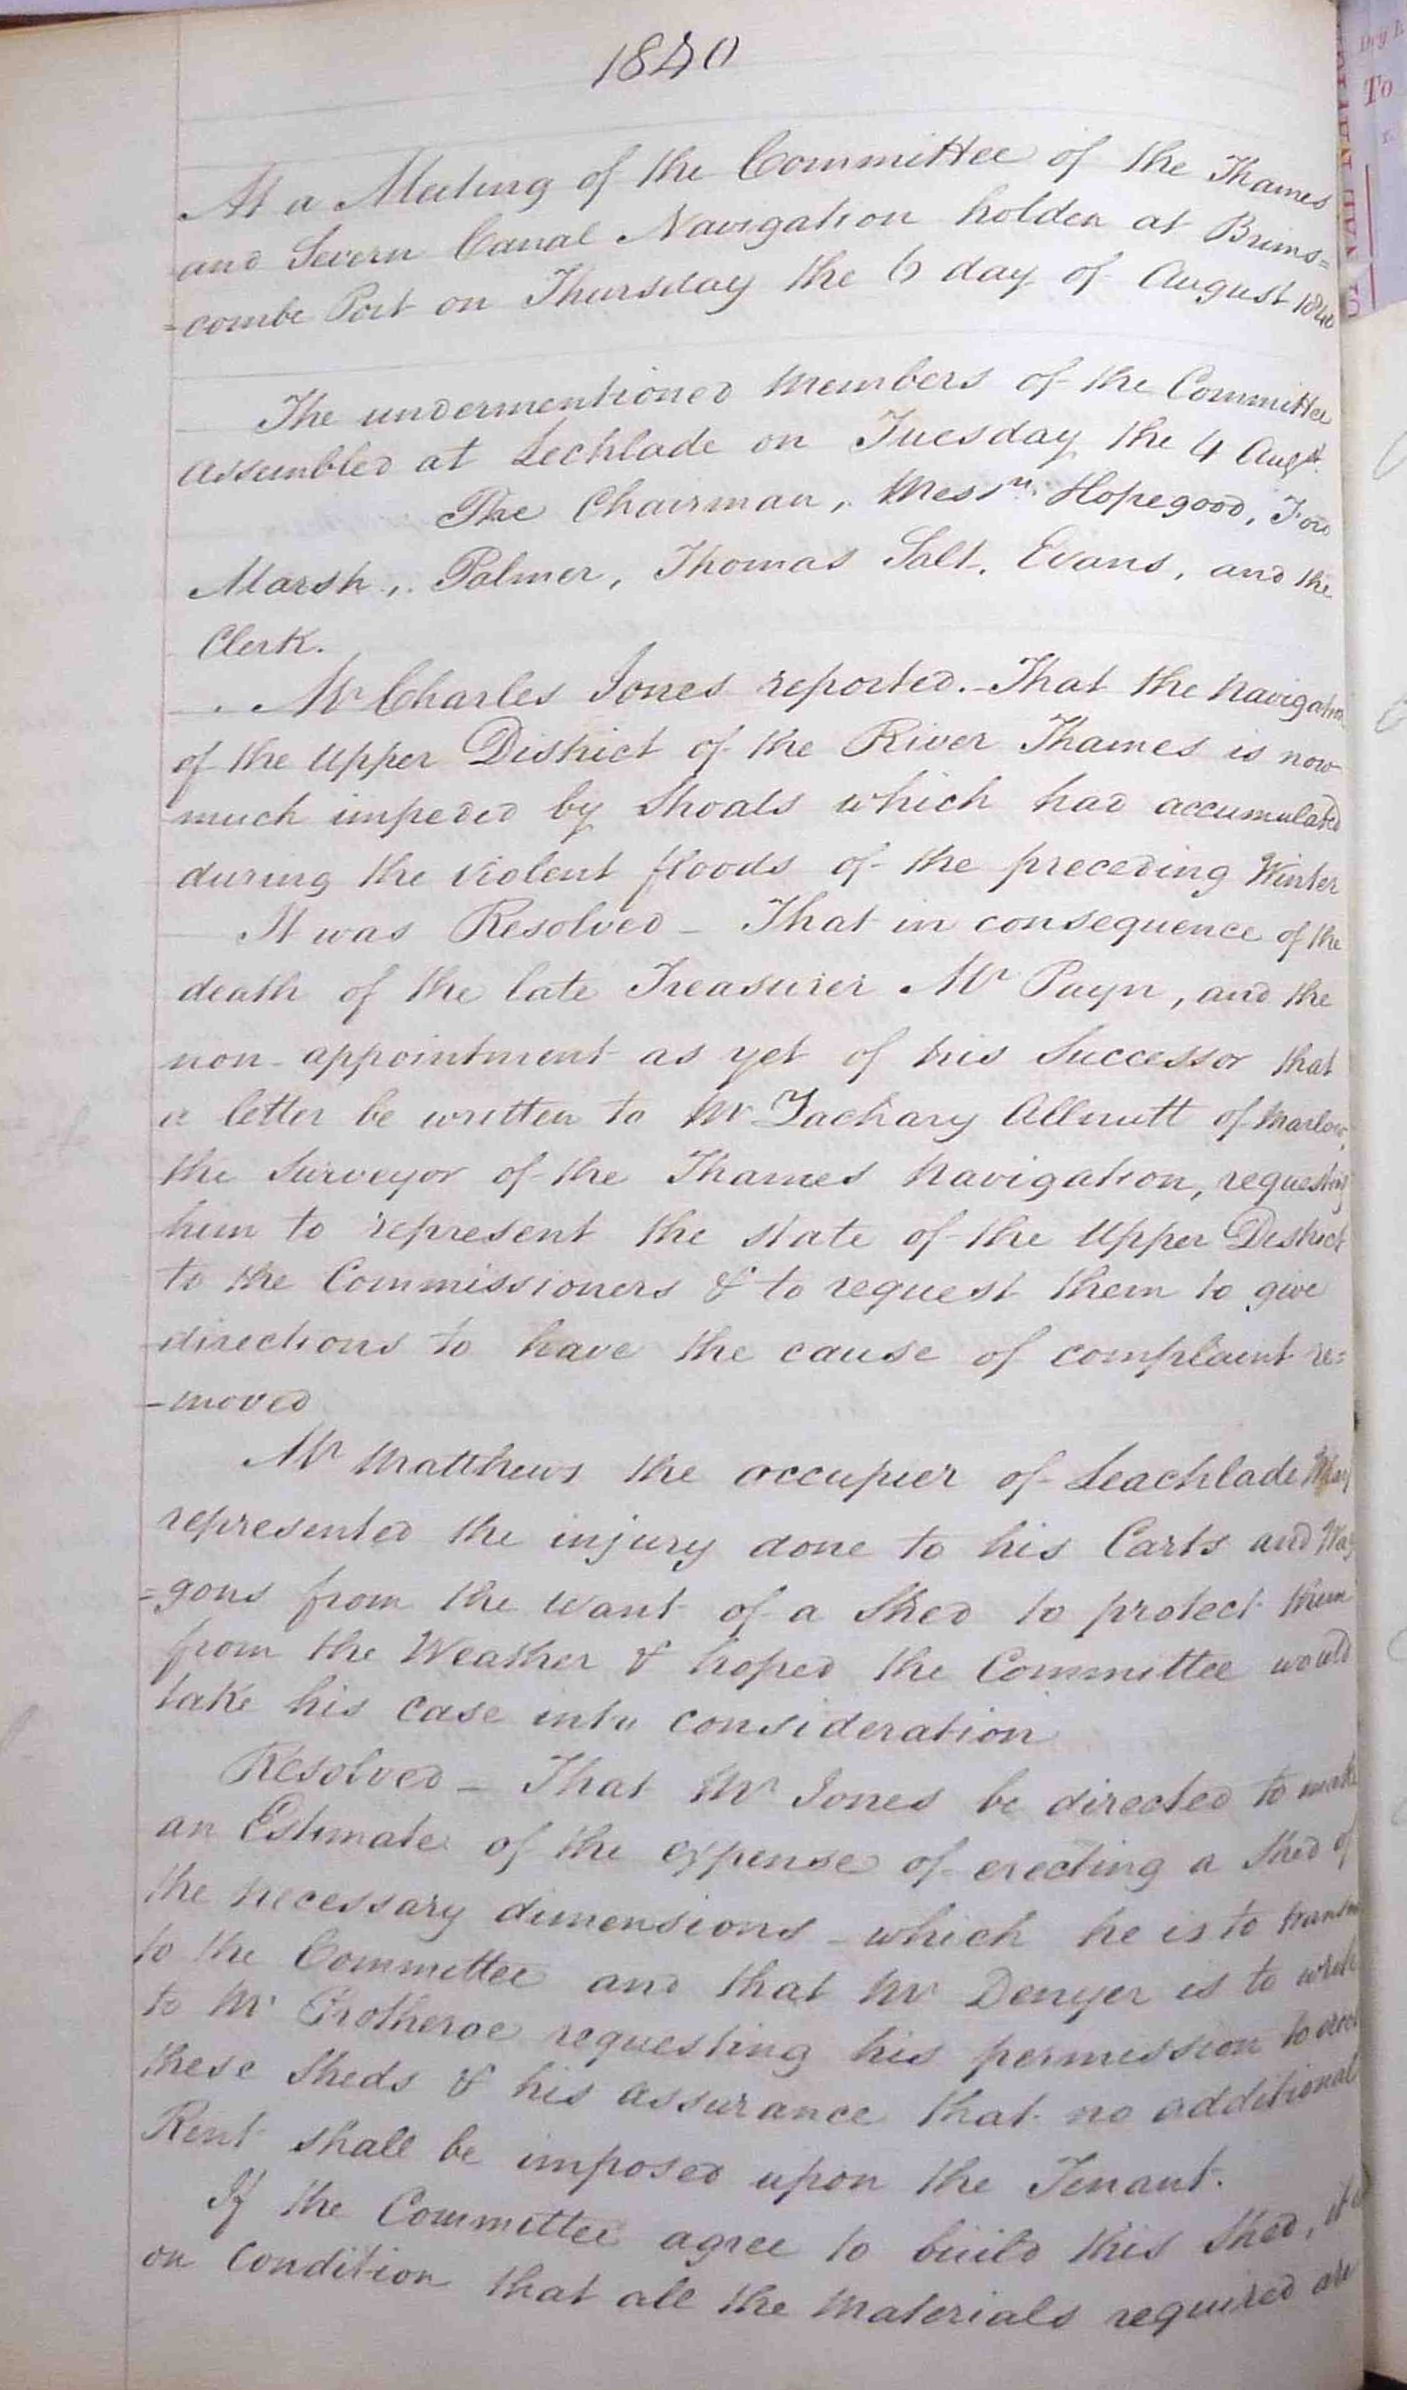 1840
At a Meeting of the Committee of the Thames
and Severn Canal Navigation holden at Brims=
=combe Port on Thursday the 6 day of August 1840
The undermentioned Members of the Committee
assembled at Lechlade on Tuesday the 4 Augst.
The Chairman, Messrs. Hopegood, Ford
Marsh, Palmer, Thomas Salt, Evans, and the
Clerk.
Mr Charles Jones reported. That the Navigation
of the Upper District of the River Thames is now
much impeded by Shoals which had accumulated
during the violent floods of the preceding Winter
It was Resolved - That in consequence of the
death of the late Treasurer Mr Payn, and the
non-appointment as yet of his Successor that
a letter be written to Mr Zachary Allnutt of Marlow,
the Surveyor of the Thames Navigation, requesting
him to represent the state of the Upper District
to the Commissioners & to request them to give
directions to have the cause of complaint re=
-moved
Mr Matthews the occupier of Leachlade Wharf
represented the injury done to his Carts and Wag
=gons from the want of a Shed to protect them
from the Weather & hoped the Committee would
take his case into consideration
Resolved - That Mr Jones be directed to make
an Estimate of the expense of erecting a Shed of
the necessary dimensions - which he is to transmit
to the Committee and that Mr Denyer is to write
to Mr Protheroe requesting his permission to erect
these Sheds & his assurance that no additional
Rent shall be imposed upon the Tenant.
If the Committee agree to build this Shed, it
on condition that all the Materials required are
To